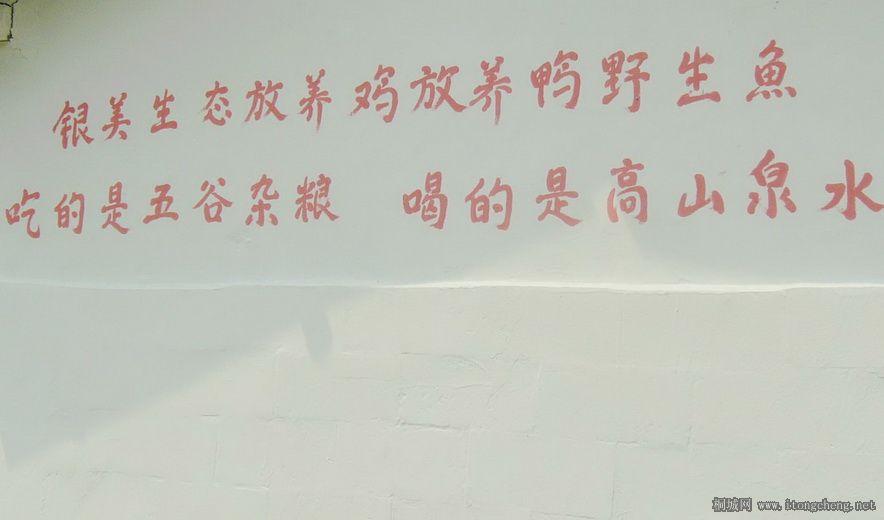 银美生态放养鸡放养鸭野生魚
吃的是五谷杂粮 喝的是高山泉水
桐城网 www.itongcheng.net